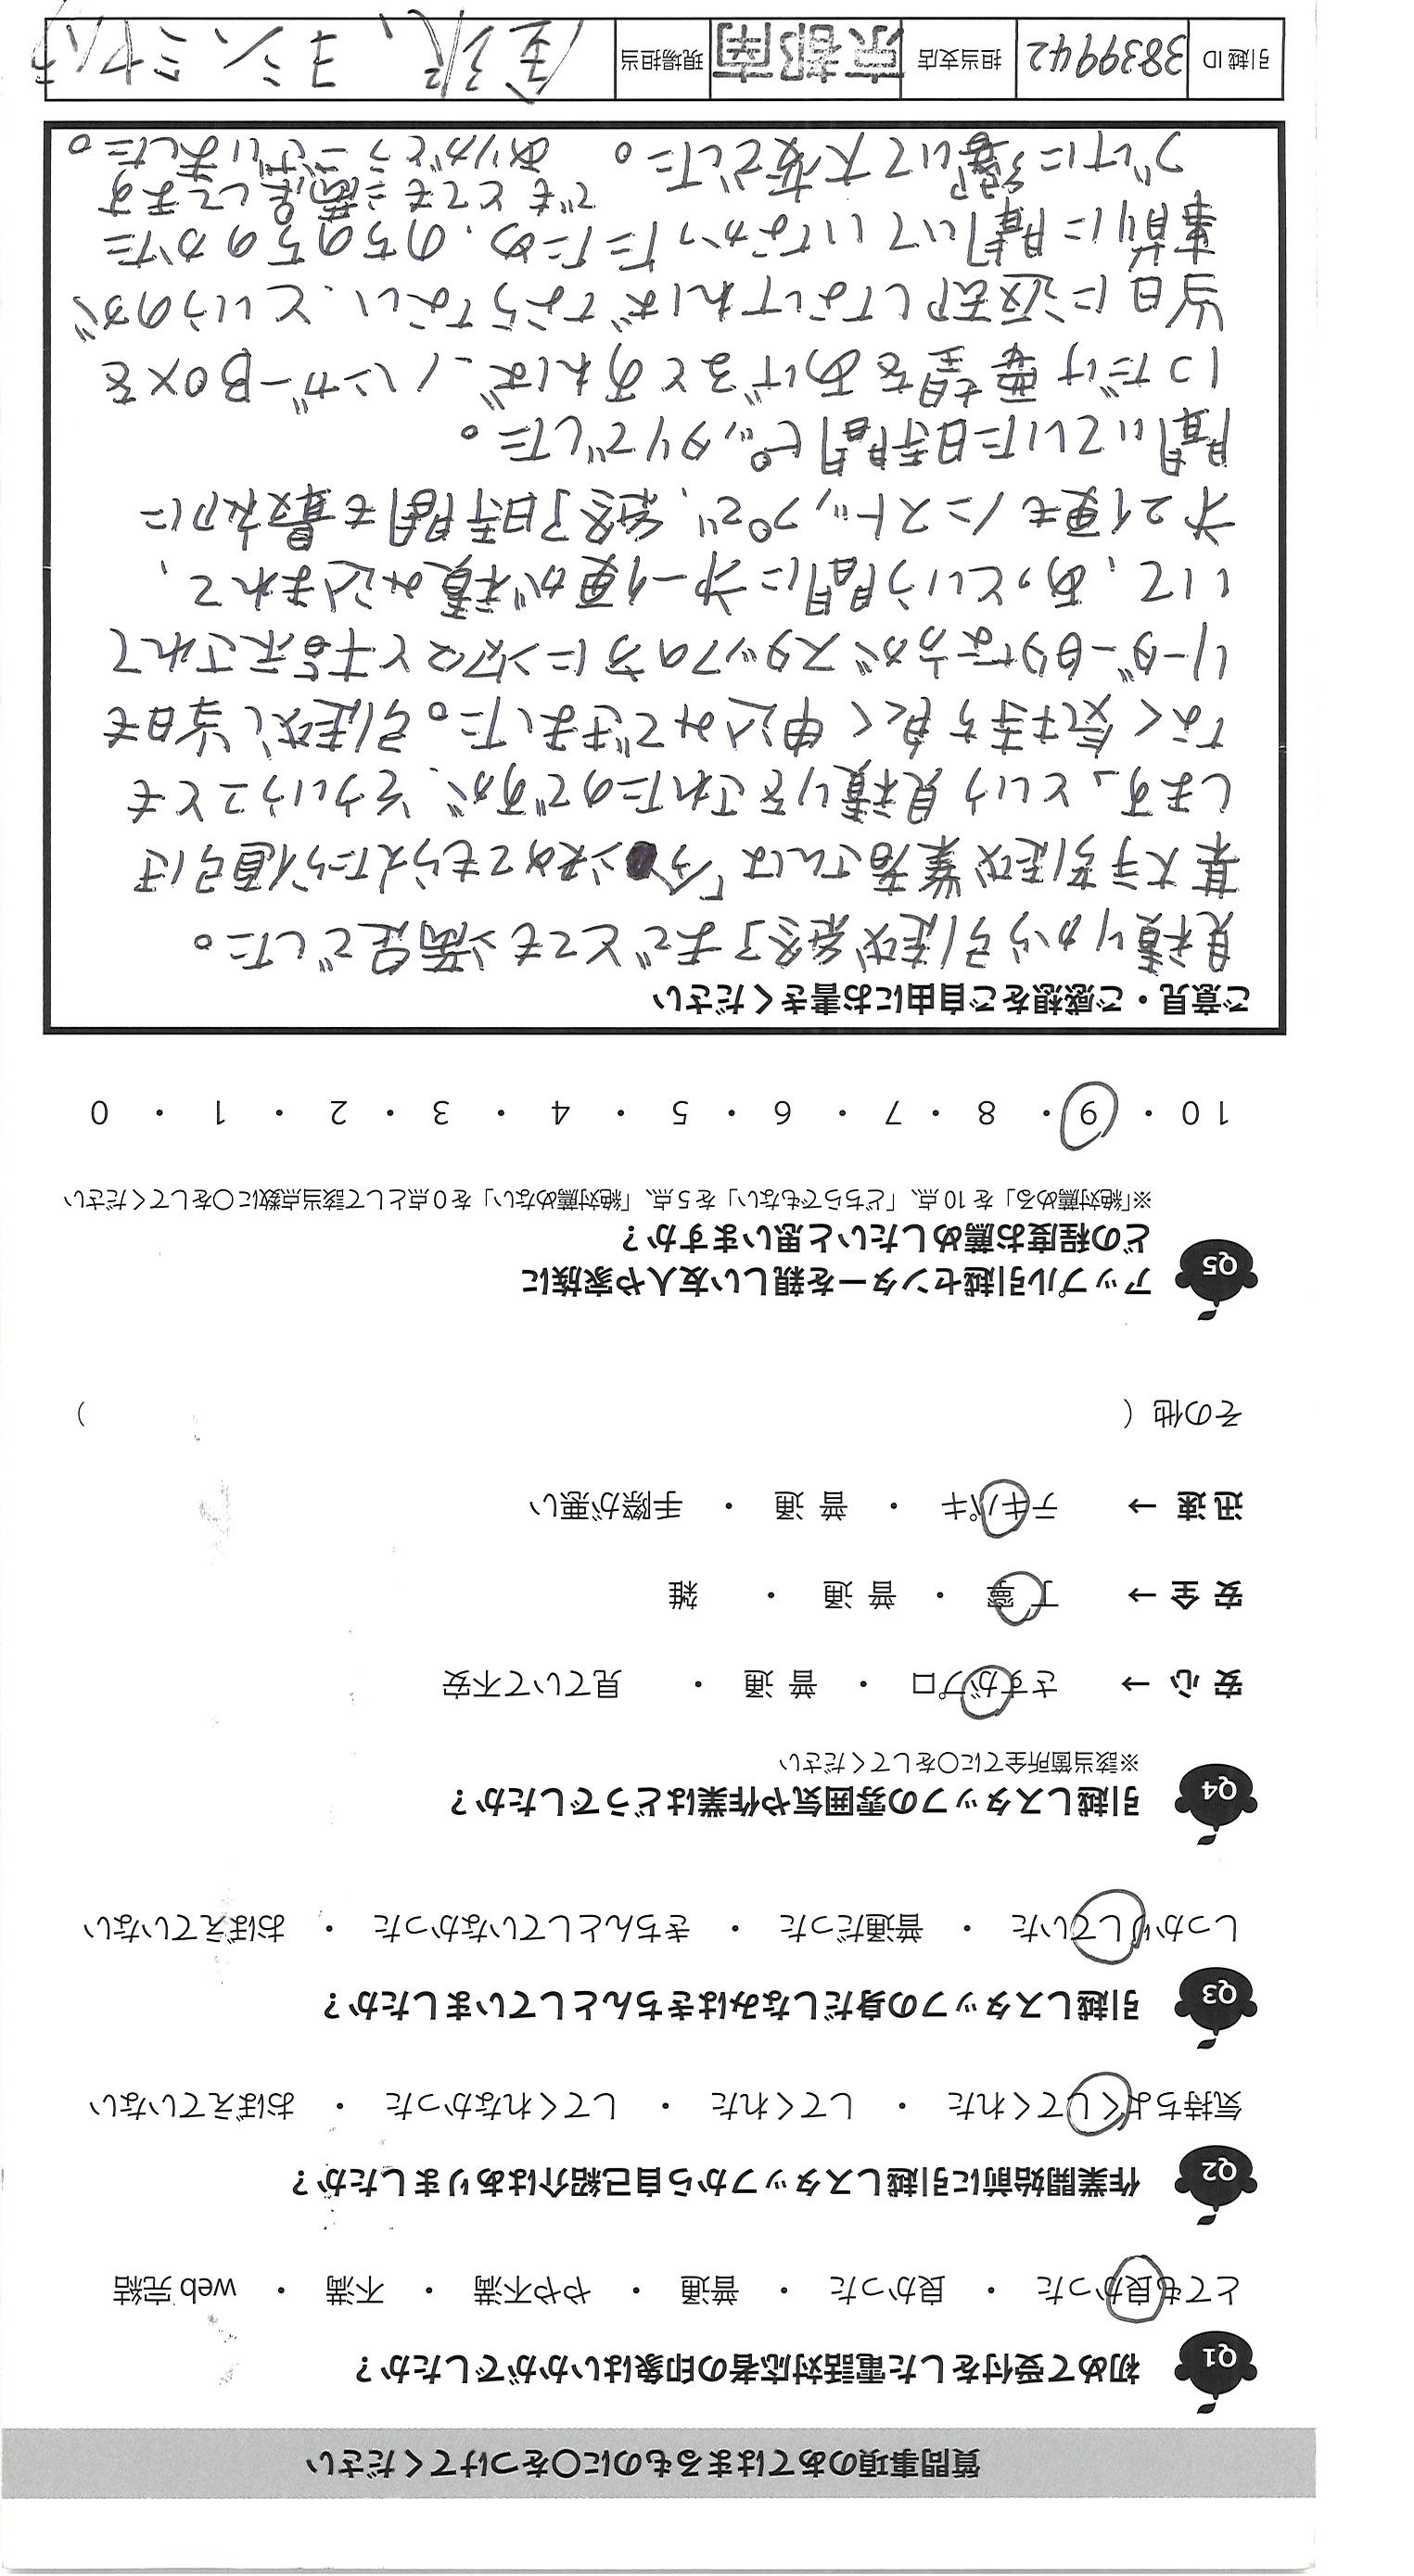 質問事項のあてはまるものに○をつけてください
Q1 初めて受付をした電話対応者の印象はいかがでしたか？
とても良かった ・ 良かった ・ 普通 ・ やや不満 ・ 不満 ・ web 完結
Q2 作業開始前に引越しスタッフから自己紹介はありましたか？
気持ちよくしてくれた ・ してくれた ・ してくれなかった ・ おぼえていない
Q3 引越しスタッフの身だしなみはきちんとしていましたか？
しっかりしていた ・ 普通だった ・ きちんとしていなかった ・ おぼえていない
Q4 引越しスタッフの雰囲気や作業はどうでしたか？
※該当箇所全てに○をしてください
安 心 → さすがプロ ・ 普 通 ・ 見ていて不安
安 全 → 丁 寧 ・ 普 通 ・ 雑
迅 速 → テキパキ ・ 普 通 ・ 手際が悪い
その他（ ）
Q5 アップル引越センターを親しい友人や家族に
どの程度お薦めしたいと思いますか？
※「絶対薦める」を 10 点、「どちらでもない」を 5 点、「絶対薦めない」を 0 点として該当点数に○をしてください
10 ・ 9 ・ 8 ・ 7 ・ 6 ・ 5 ・ 4 ・ 3 ・ 2 ・ 1 ・ 0
ご意見・ご感想をご自由にお書きください
見積りから引越終了までとても満足でした。
某大手引越業者さんは「今決めてもらえたら値引き
します」という見積りをされたのですが、そういうことも
なく気持ち良く申込みできました。引越し当日も
リーダー的な方がスタッフの方にテキパキと指示されて
いて、あっという間に第一便が積み込まれて、
第2便もノンストップで、終了時間も最初に
聞いていた時間ピッタリでした。
1つだけ要望をあげるとあれば、ハンガーBOXを
当日に返却しなければならない、というのが
事前に聞いていなかったため、のちのちのかた
づけに影響いて大変でした。
でもとても満足してます
ありがとうございました。
引越 ID 3839942 担当支店 京都南 現場担当